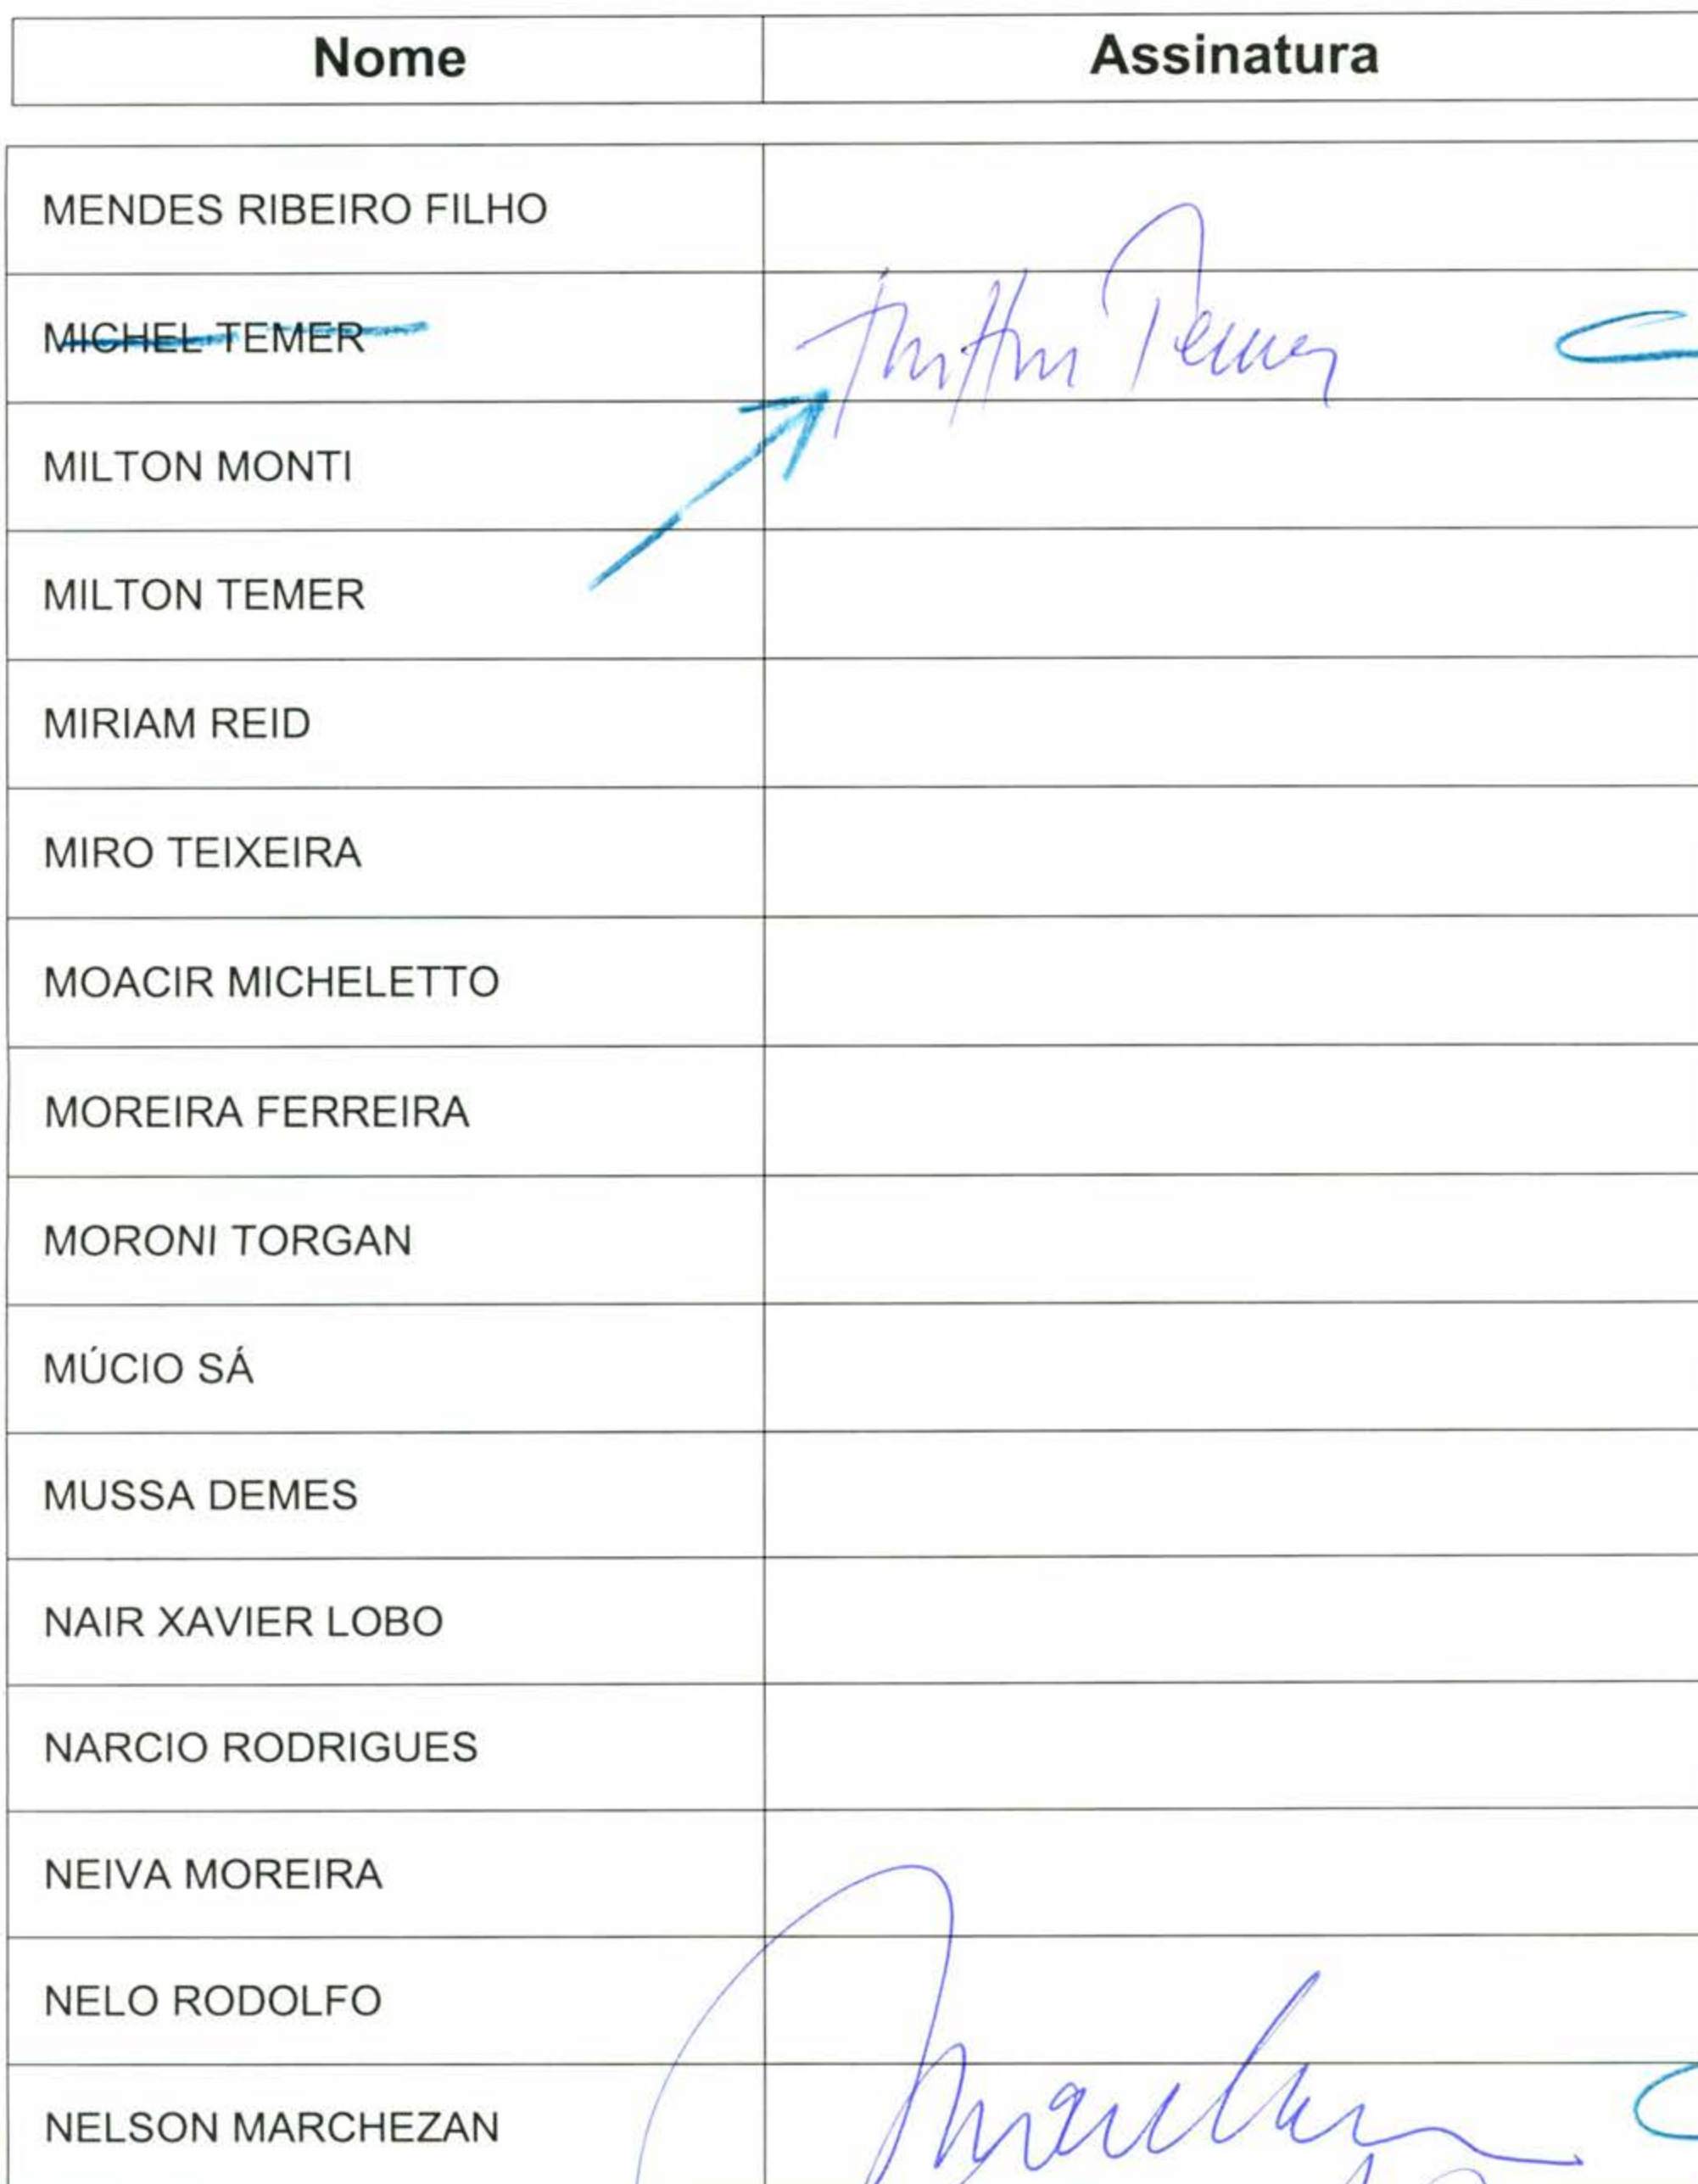 Nome Assinatura
MENDES RIBEIRO FILHO
MICHEL TEMER Milton Temer
MILTON MONTI
MILTON TEMER
MIRIAM REID
MIRO TEIXEIRA
MOACIR MICHELETTO
MOREIRA FERREIRA
MORONI TORGAN
MÚCIO SÁ
MUSSA DEMES
NAIR XAVIER LOBO
NARCIO RODRIGUES
NEIVA MOREIRA
NELO RODOLFO
NELSON MARCHEZAN